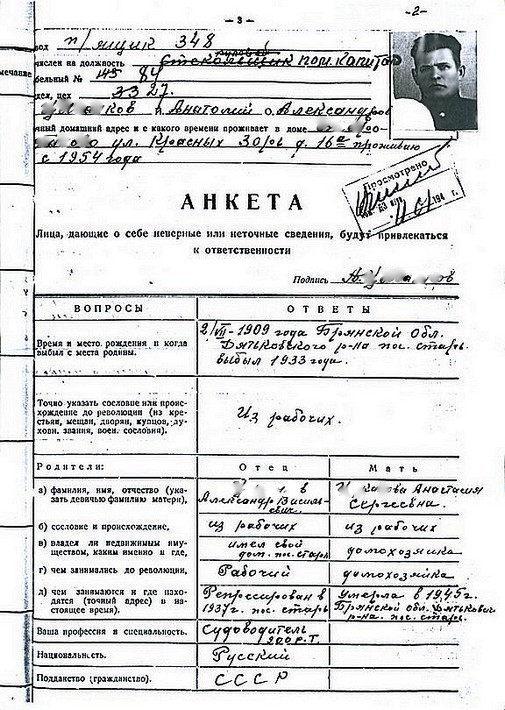 — 3 —
-2-
вод п/ящик 348
числен на должность рулевой пом. капитан
мечание
бельный № 145 84
дел, цех 3327.
Анатолий о. Александров
чный домашний адрес и с какого времени проживает в доме
ул. Красных Зорь д. 16а проживаю
с 1954 года
Просмотрено
194 г.
АНКЕТА
Лица, дающие о себе неверные или неточные сведения, будут привлекаться
к ответственности
Подпись
ВОПРОСЫ ОТВЕТЫ
Время и место рождения и когда выбыл с места родины.
2/VII-1909 года Брянской Обл.
Дятьковского р-на пос. старь.
выбыл 1933 года.
Точно указать сословие или происхождение до революции (из крестьян, мещан, дворян, купцов, духовн. звания, воен. сословия).
Из рабочих.
Родители: Отец Мать
а) фамилия, имя, отчество (указать девичью фамилию матери),
Александр Василь-
евич.
Анастасия
Сергеевна.
б) сословие и происхождение,
из рабочих из рабочих
в) владел ли недвижимым имуществом, каким именно и где,
имел свой
дом. пос. старь
домохозяйка
г) чем занимались до революции,
Рабочий домохозяйка
д) чем занимаются и где находятся (точный адрес) в настоящее время).
Репрессирован в
1937г. пос. старь
Умерла в 1945г.
Брянской обл. Дятьковск
р-на. пос. старь.
Ваша профессия и специальность.
Судоводитель
200 р.т.
Национальность.
Русский
Подданство (гражданство).
СССР